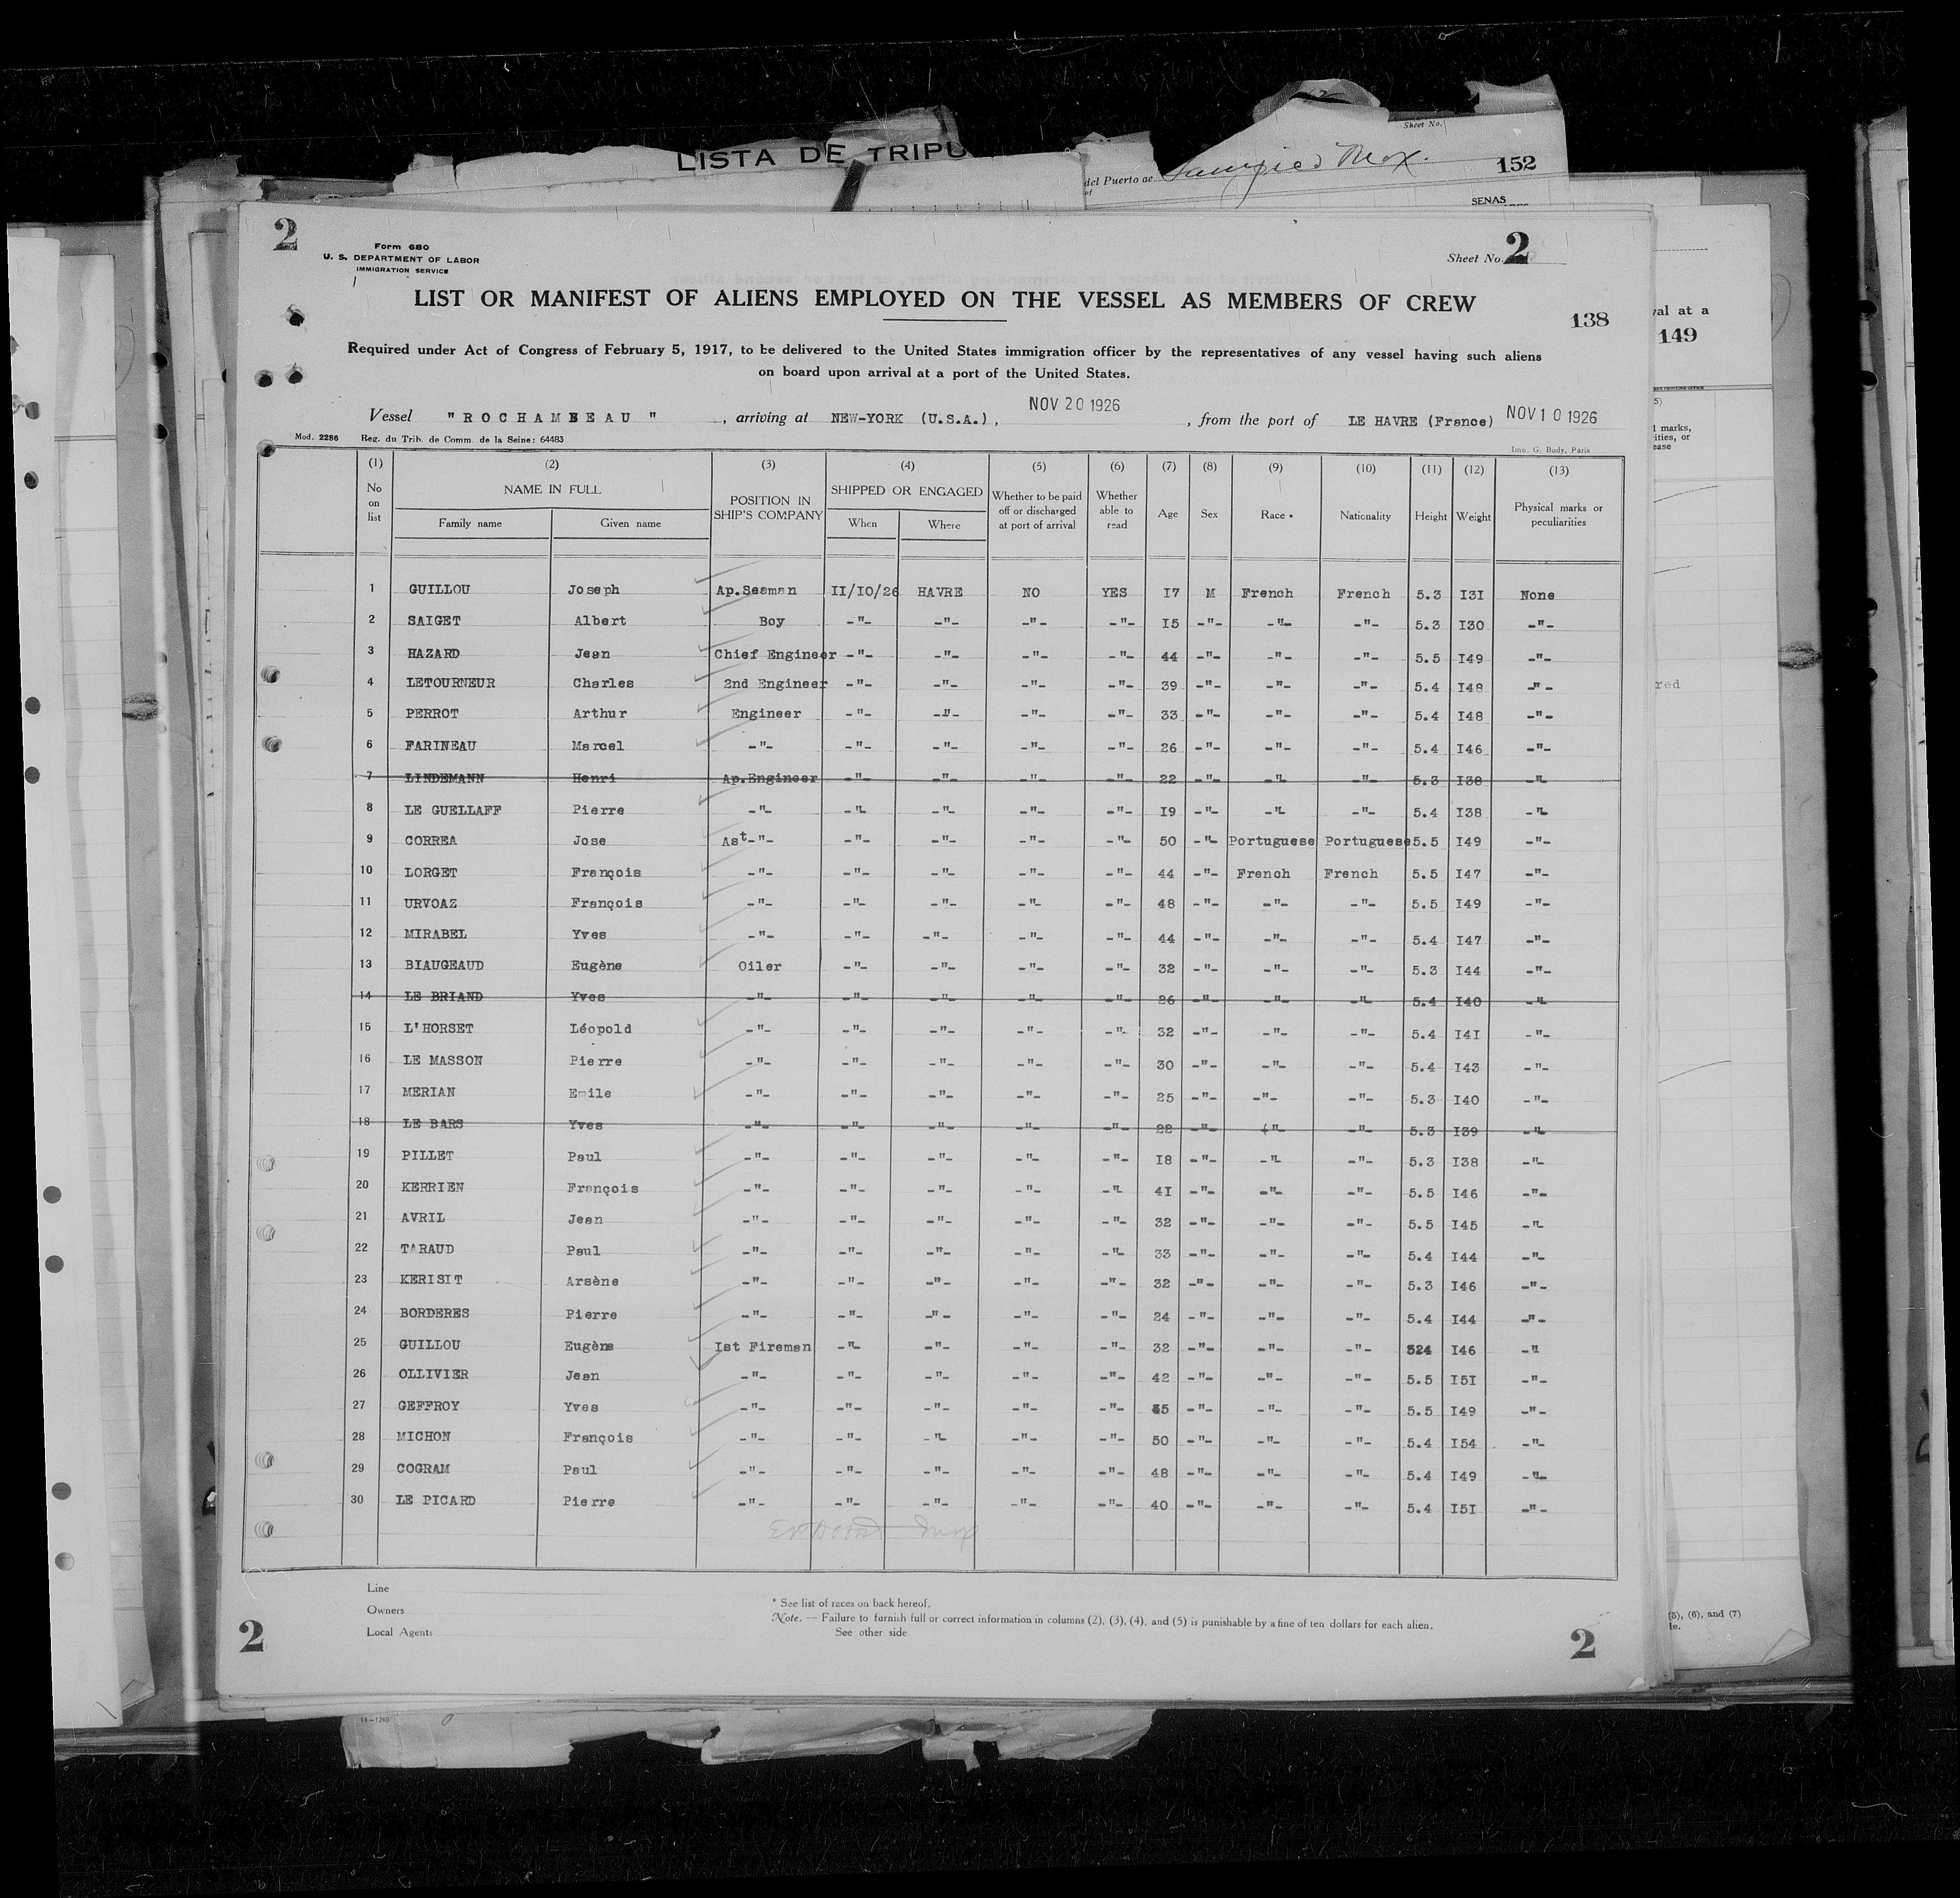 LISTA DE TRIPU
Sheet No.
del Puerto de
152
SENAS
2
Form 680
U. S. DEPARTMENT OF LABOR
IMMIGRATION SERVICE
Sheet No. 2
LIST OR MANIFEST OF ALIENS EMPLOYED ON THE VESSEL AS MEMBERS OF CREW
138
val at a
149
Required under Act of Congress of February 5, 1917, to be delivered to the United States immigration officer by the representatives of any vessel having such aliens
on board upon arrival at a port of the United States.
Vessel "ROCHAMBEAU", arriving at NEW-YORK (U.S.A.), NOV 20 1926, from the port of LE HAVRE (France) NOV 10 1926
Mod. 2286 Reg. du Trib. de Comm. de la Seine: 64483
Imp. G. Body, Paris
(1) (2) (3) (4) (5) (6) (7) (8) (9) (10) (11) (12) (13)
No on list NAME IN FULL Family name Given name POSITION IN SHIP'S COMPANY SHIPPED OR ENGAGED When Where Whether to be paid off or discharged at port of arrival Whether able to read Age Sex Race * Nationality Height Weight Physical marks or peculiarities
1 GUILLOU Joseph Ap.Seaman II/IO/26 HAVRE NO YES I7 M French French 5.3 I3I None
2 SAIGET Albert Boy -"- -"- -"- -"- I5 -"- -"- -"- 5.3 I30 -"-
3 HAZARD Jean Chief Engineer -"- -"- -"- -"- 44 -"- -"- -"- 5.5 I49 -"-
4 LETOURNEUR Charles 2nd Engineer -"- -"- -"- -"- 39 -"- -"- -"- 5.4 I48 -"-
5 PERROT Arthur Engineer -"- -"- -"- -"- 33 -"- -"- -"- 5.4 I48 -"-
6 FARINEAU Marcel -"- -"- -"- -"- -"- 26 -"- -"- -"- 5.4 I46 -"-
7 LINDEMANN Henri Ap.Engineer -"- -"- -"- -"- 22 -"- -"- -"- 5.3 I38 -"-
8 LE GUELLAFF Pierre -"- -"- -"- -"- -"- I9 -"- -"- -"- 5.4 I38 -"-
9 CORREA Jose Ast-"- -"- -"- -"- -"- 50 -"- Portuguese Portuguese 5.5 I49 -"-
10 LORGET François -"- -"- -"- -"- -"- 44 -"- French French 5.5 I47 -"-
11 URVOAZ François -"- -"- -"- -"- -"- 48 -"- -"- -"- 5.5 I49 -"-
12 MIRABEL Yves -"- -"- -"- -"- -"- 44 -"- -"- -"- 5.4 I47 -"-
13 BIAUGEAUD Eugène Oiler -"- -"- -"- -"- 32 -"- -"- -"- 5.3 I44 -"-
14 LE BRIAND Yves -"- -"- -"- -"- -"- 26 -"- -"- -"- 5.4 I40 -"-
15 L'HORSET Léopold -"- -"- -"- -"- -"- 32 -"- -"- -"- 5.4 I4I -"-
16 LE MASSON Pierre -"- -"- -"- -"- -"- 30 -"- -"- -"- 5.4 I43 -"-
17 MERIAN Emile -"- -"- -"- -"- -"- 25 -"- -"- -"- 5.3 I40 -"-
18 LE BARS Yves -"- -"- -"- -"- -"- 22 -"- -"- -"- 5.3 I39 -"-
19 PILLET Paul -"- -"- -"- -"- -"- I8 -"- -"- -"- 5.3 I38 -"-
20 KERRIEN François -"- -"- -"- -"- -"- 4I -"- -"- -"- 5.5 I46 -"-
21 AVRIL Jean -"- -"- -"- -"- -"- 32 -"- -"- -"- 5.5 I45 -"-
22 TARAUD Paul -"- -"- -"- -"- -"- 33 -"- -"- -"- 5.4 I44 -"-
23 KERISIT Arsène -"- -"- -"- -"- -"- 32 -"- -"- -"- 5.3 I46 -"-
24 BORDERES Pierre -"- -"- -"- -"- -"- 24 -"- -"- -"- 5.4 I44 -"-
25 GUILLOU Eugène Ist Fireman -"- -"- -"- -"- 32 -"- -"- -"- 524 I46 -"-
26 OLLIVIER Jean -"- -"- -"- -"- -"- 42 -"- -"- -"- 5.5 I5I -"-
27 GEFFROY Yves -"- -"- -"- -"- -"- -"- -"- -"- 5.5 I49 -"-
28 MICHON François -"- -"- -"- -"- -"- 50 -"- -"- -"- 5.4 I54 -"-
29 COGRAM Paul -"- -"- -"- -"- -"- 48 -"- -"- -"- 5.4 I49 -"-
30 LE PICARD Pierre -"- -"- -"- -"- -"- 40 -"- -"- -"- 5.4 I5I -"-
Line
Owners
Local Agents
* See list of races on back hereof.
Note. — Failure to furnish full or correct information in columns (2), (3), (4), and (5) is punishable by a fine of ten dollars for each alien.
See other side
(5), (6), and (7)
2
2